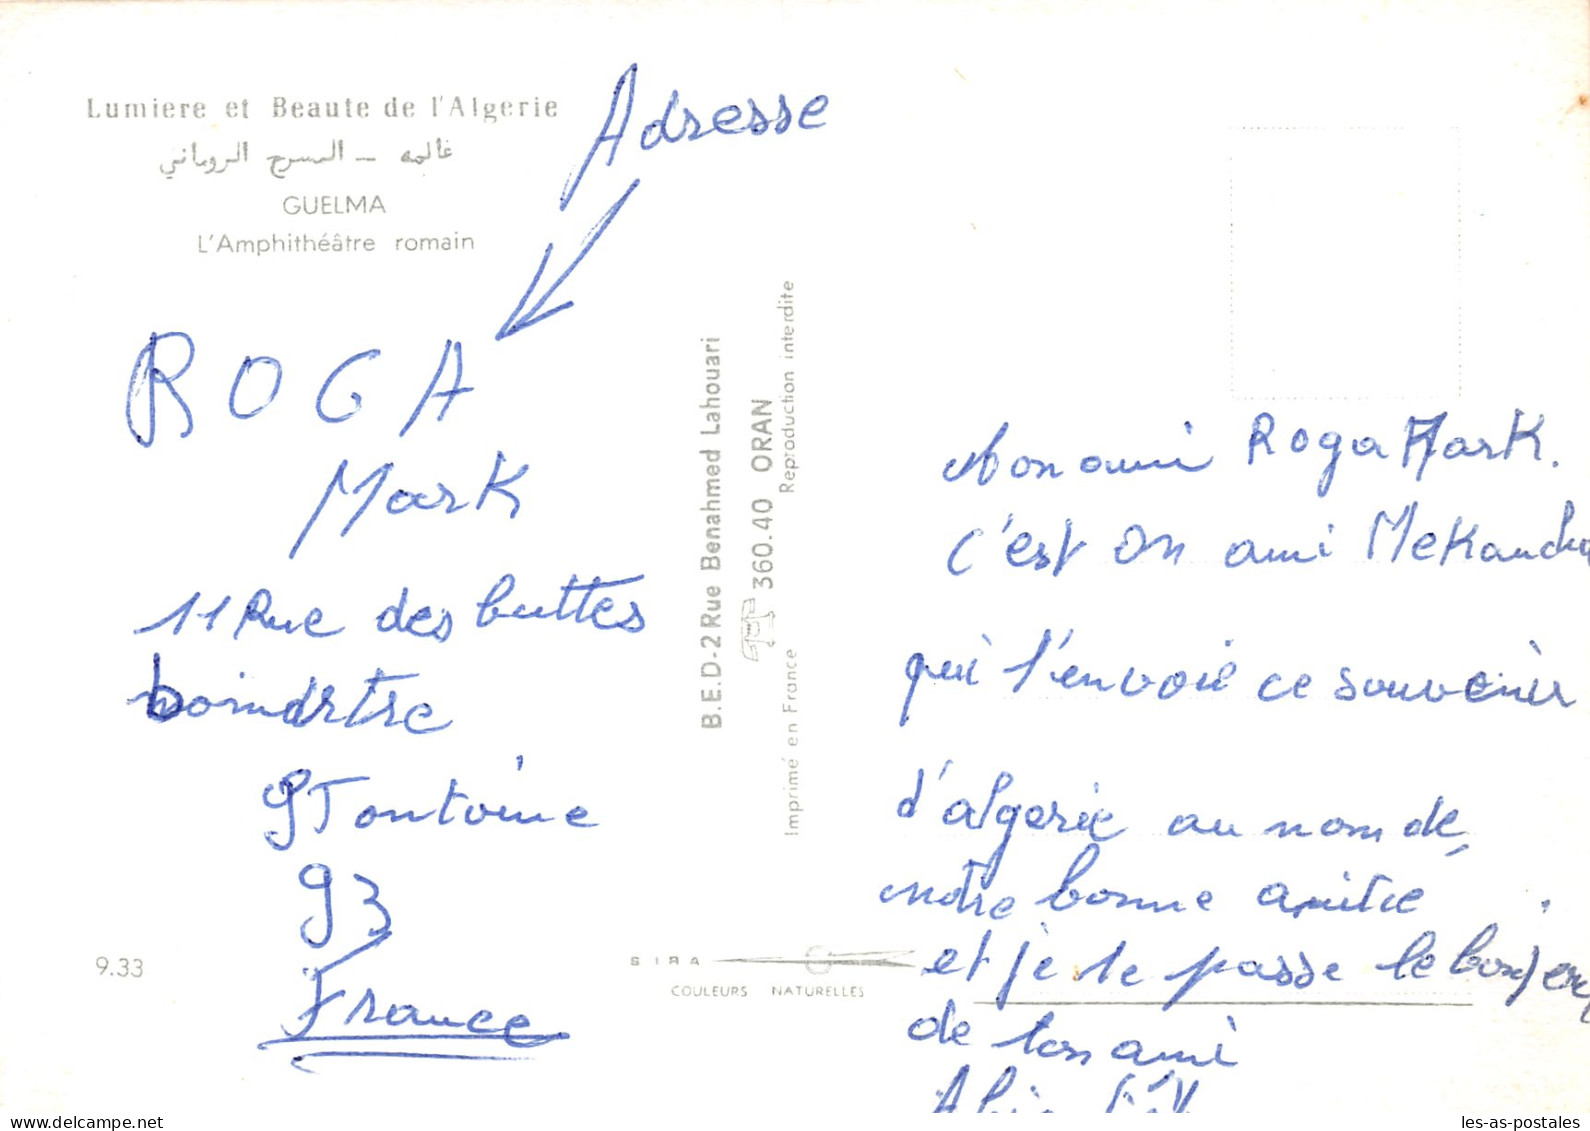 Lumiere et Beaute de l'Algerie
غالمه — المسرح الروماني
GUELMA
L'Amphithéâtre romain
Adresse
ROGA
Mark
11 Rue des buttes
STontoine
93
France
9.33
B.E.D-2 Rue Benahmed Lahouari
360.40 ORAN
Reproduction interdite
Imprimé en France
SIRA
COULEURS NATURELLES
Mon ami Roga Mark.
c'est on ami
qui t'envoie ce souvenir
d'algerie au nom de
notre bonne amitie
et je te passe le
de ton ami
les-as-postales